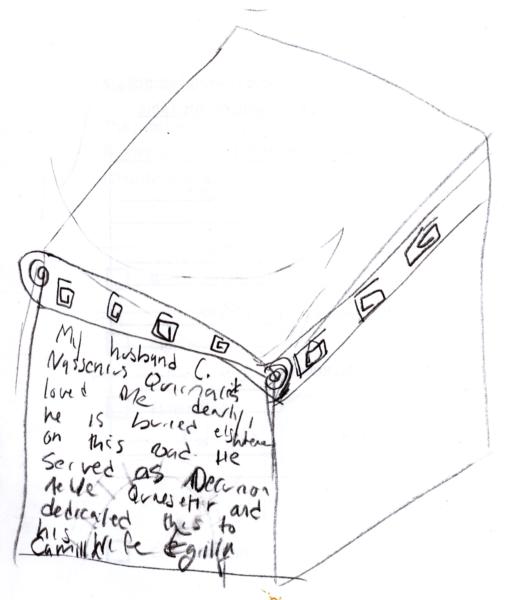 My husband C.
Nassenius Quirinalis
loved me dearly,
he is buried elsewhere
on this road. He
served as Decurion
and
dedicated this to
his wife Egilia
Camilla